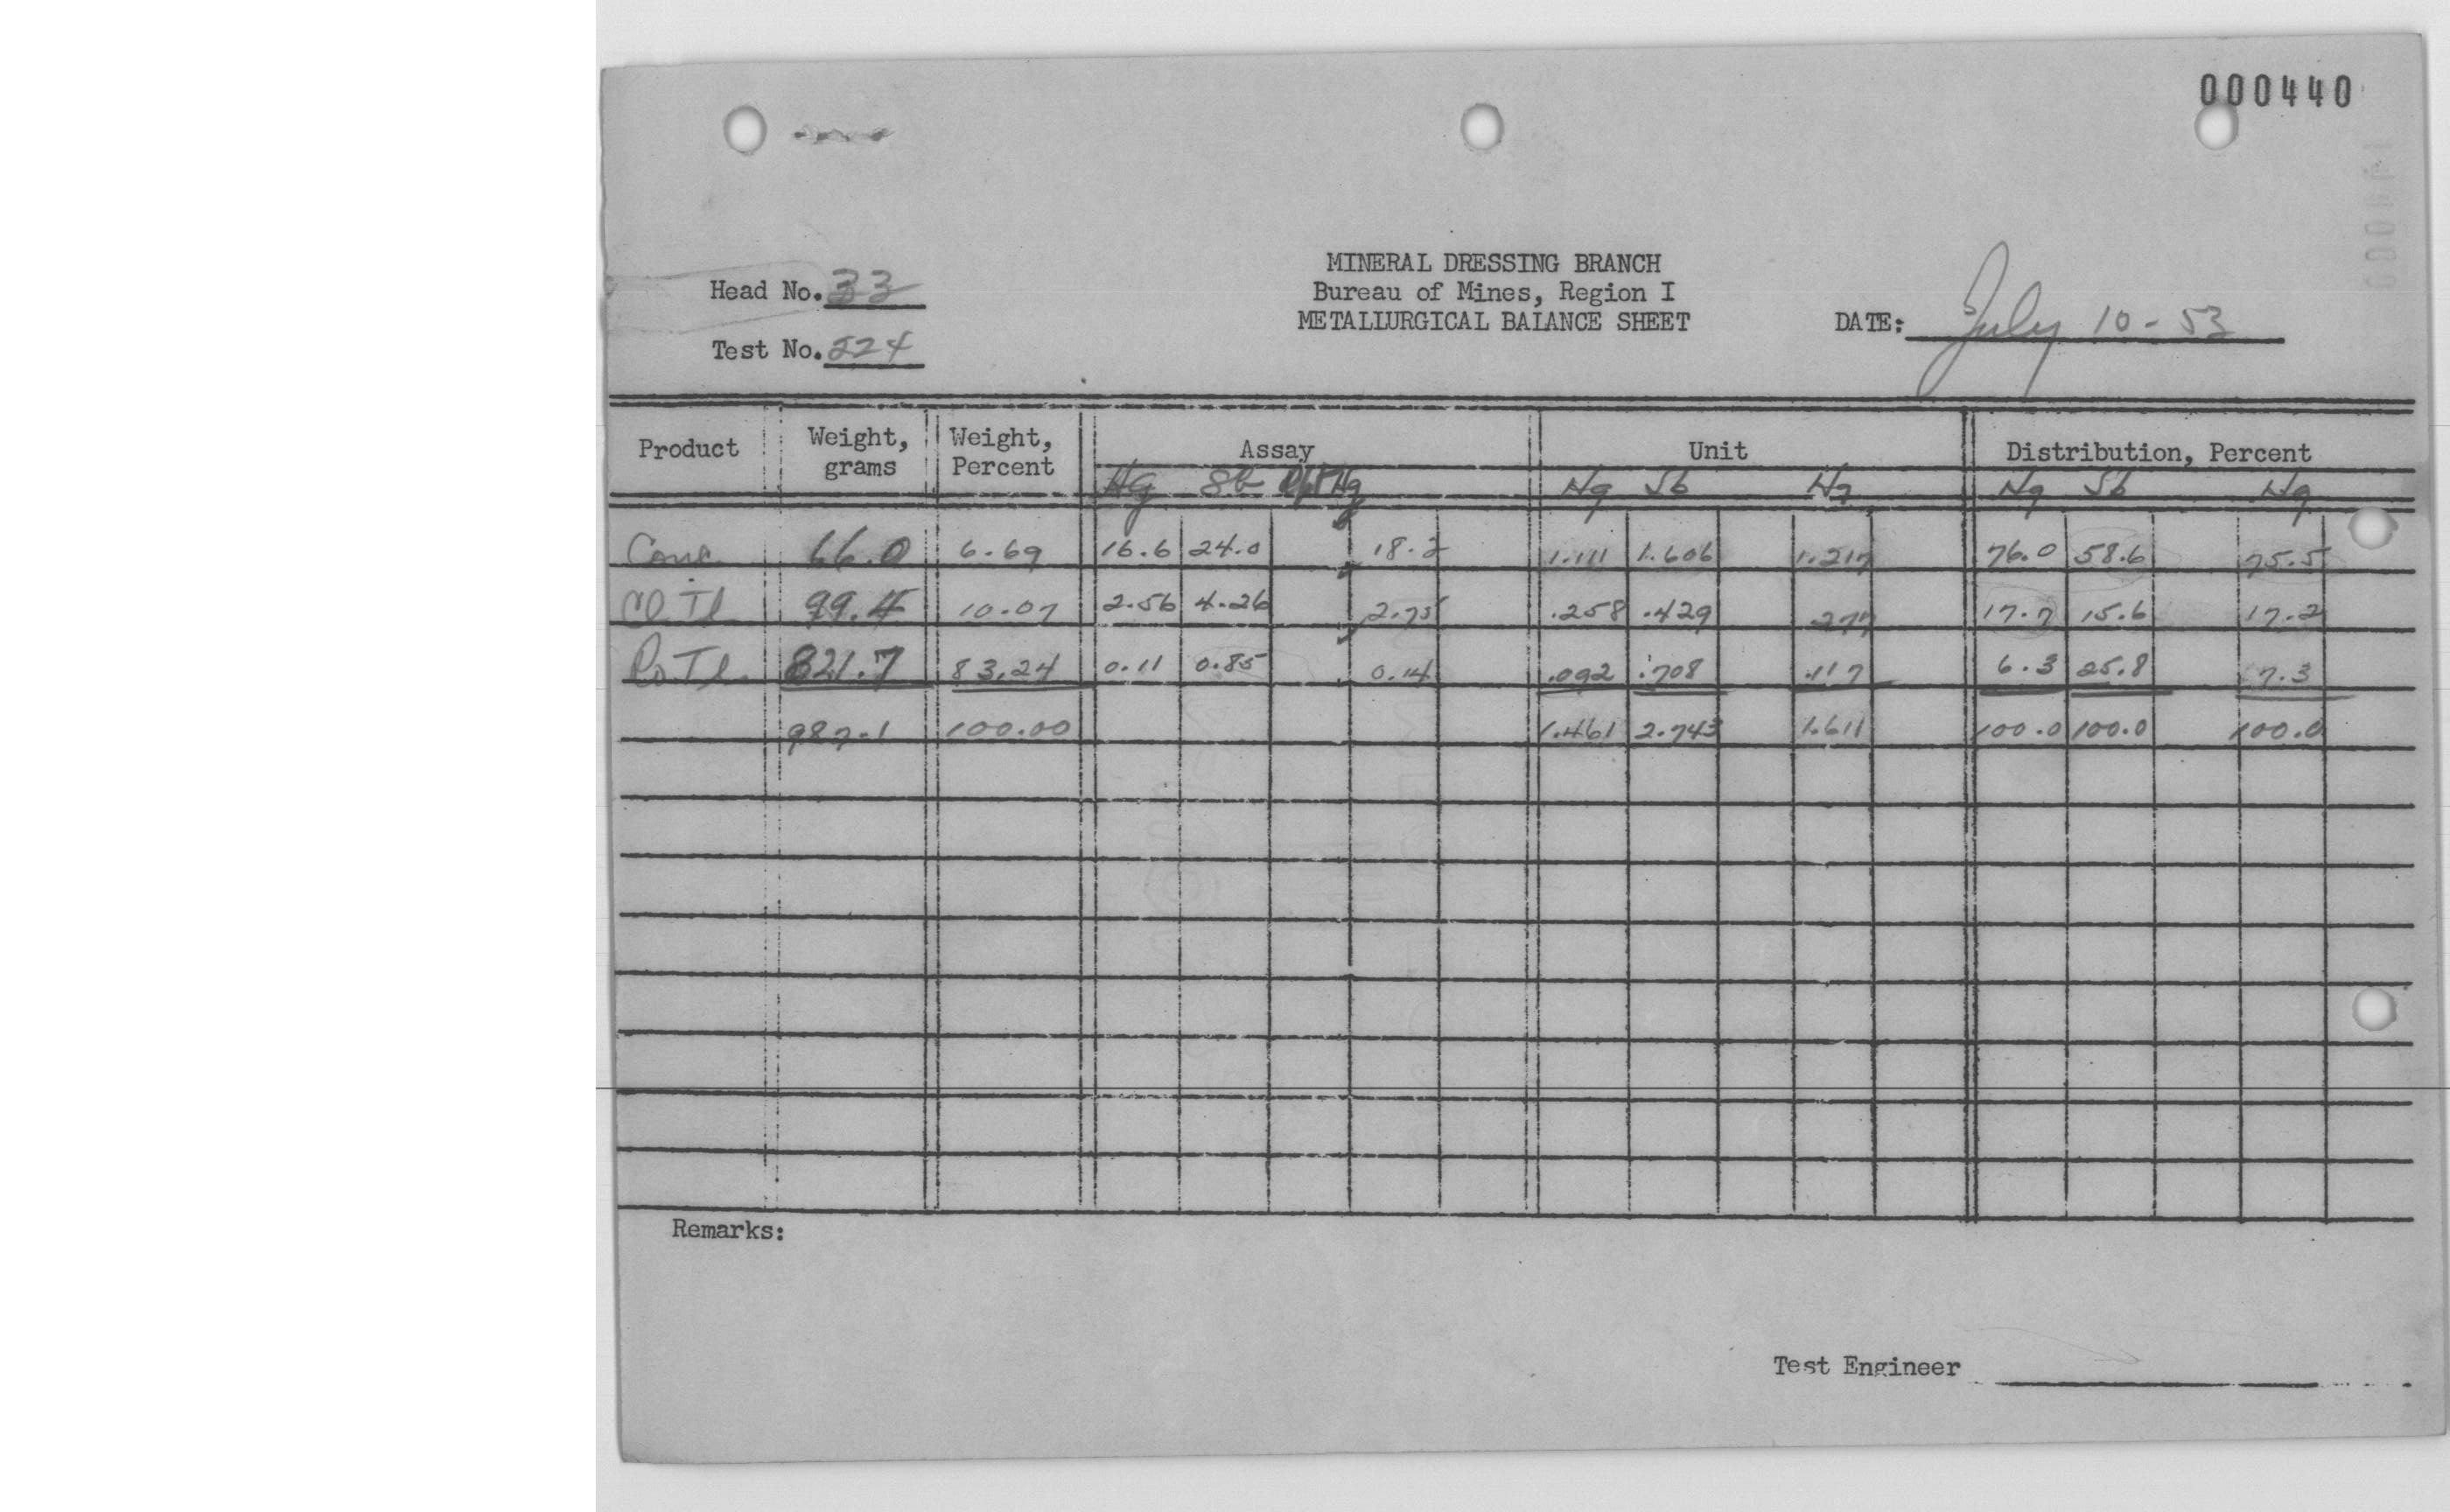 000440
MINERAL DRESSING BRANCH
Head No. 33 Bureau of Mines, Region I
METALLURGICAL BALANCE SHEET DATE: July 10-53
Test No. 524
Product Weight, grams Weight, Percent Assay Unit Distribution, Percent
Hg Sb Hg Hg Sb Hg Hg Sb Hg
Conc. 66.0 6.69 16.6 24.0 18.2 1.111 1.606 1.217 76.0 58.6 75.5
Cl Tl 99.4 10.07 2.56 4.26 2.75 .258 .429 .277 17.7 15.6 17.2
Ro Tl. 821.7 83.24 0.11 0.85 0.14 .092 .708 .117 6.3 25.8 7.3
987.1 100.00 1.461 2.743 1.611 100.0 100.0 100.0
Remarks:
Test Engineer